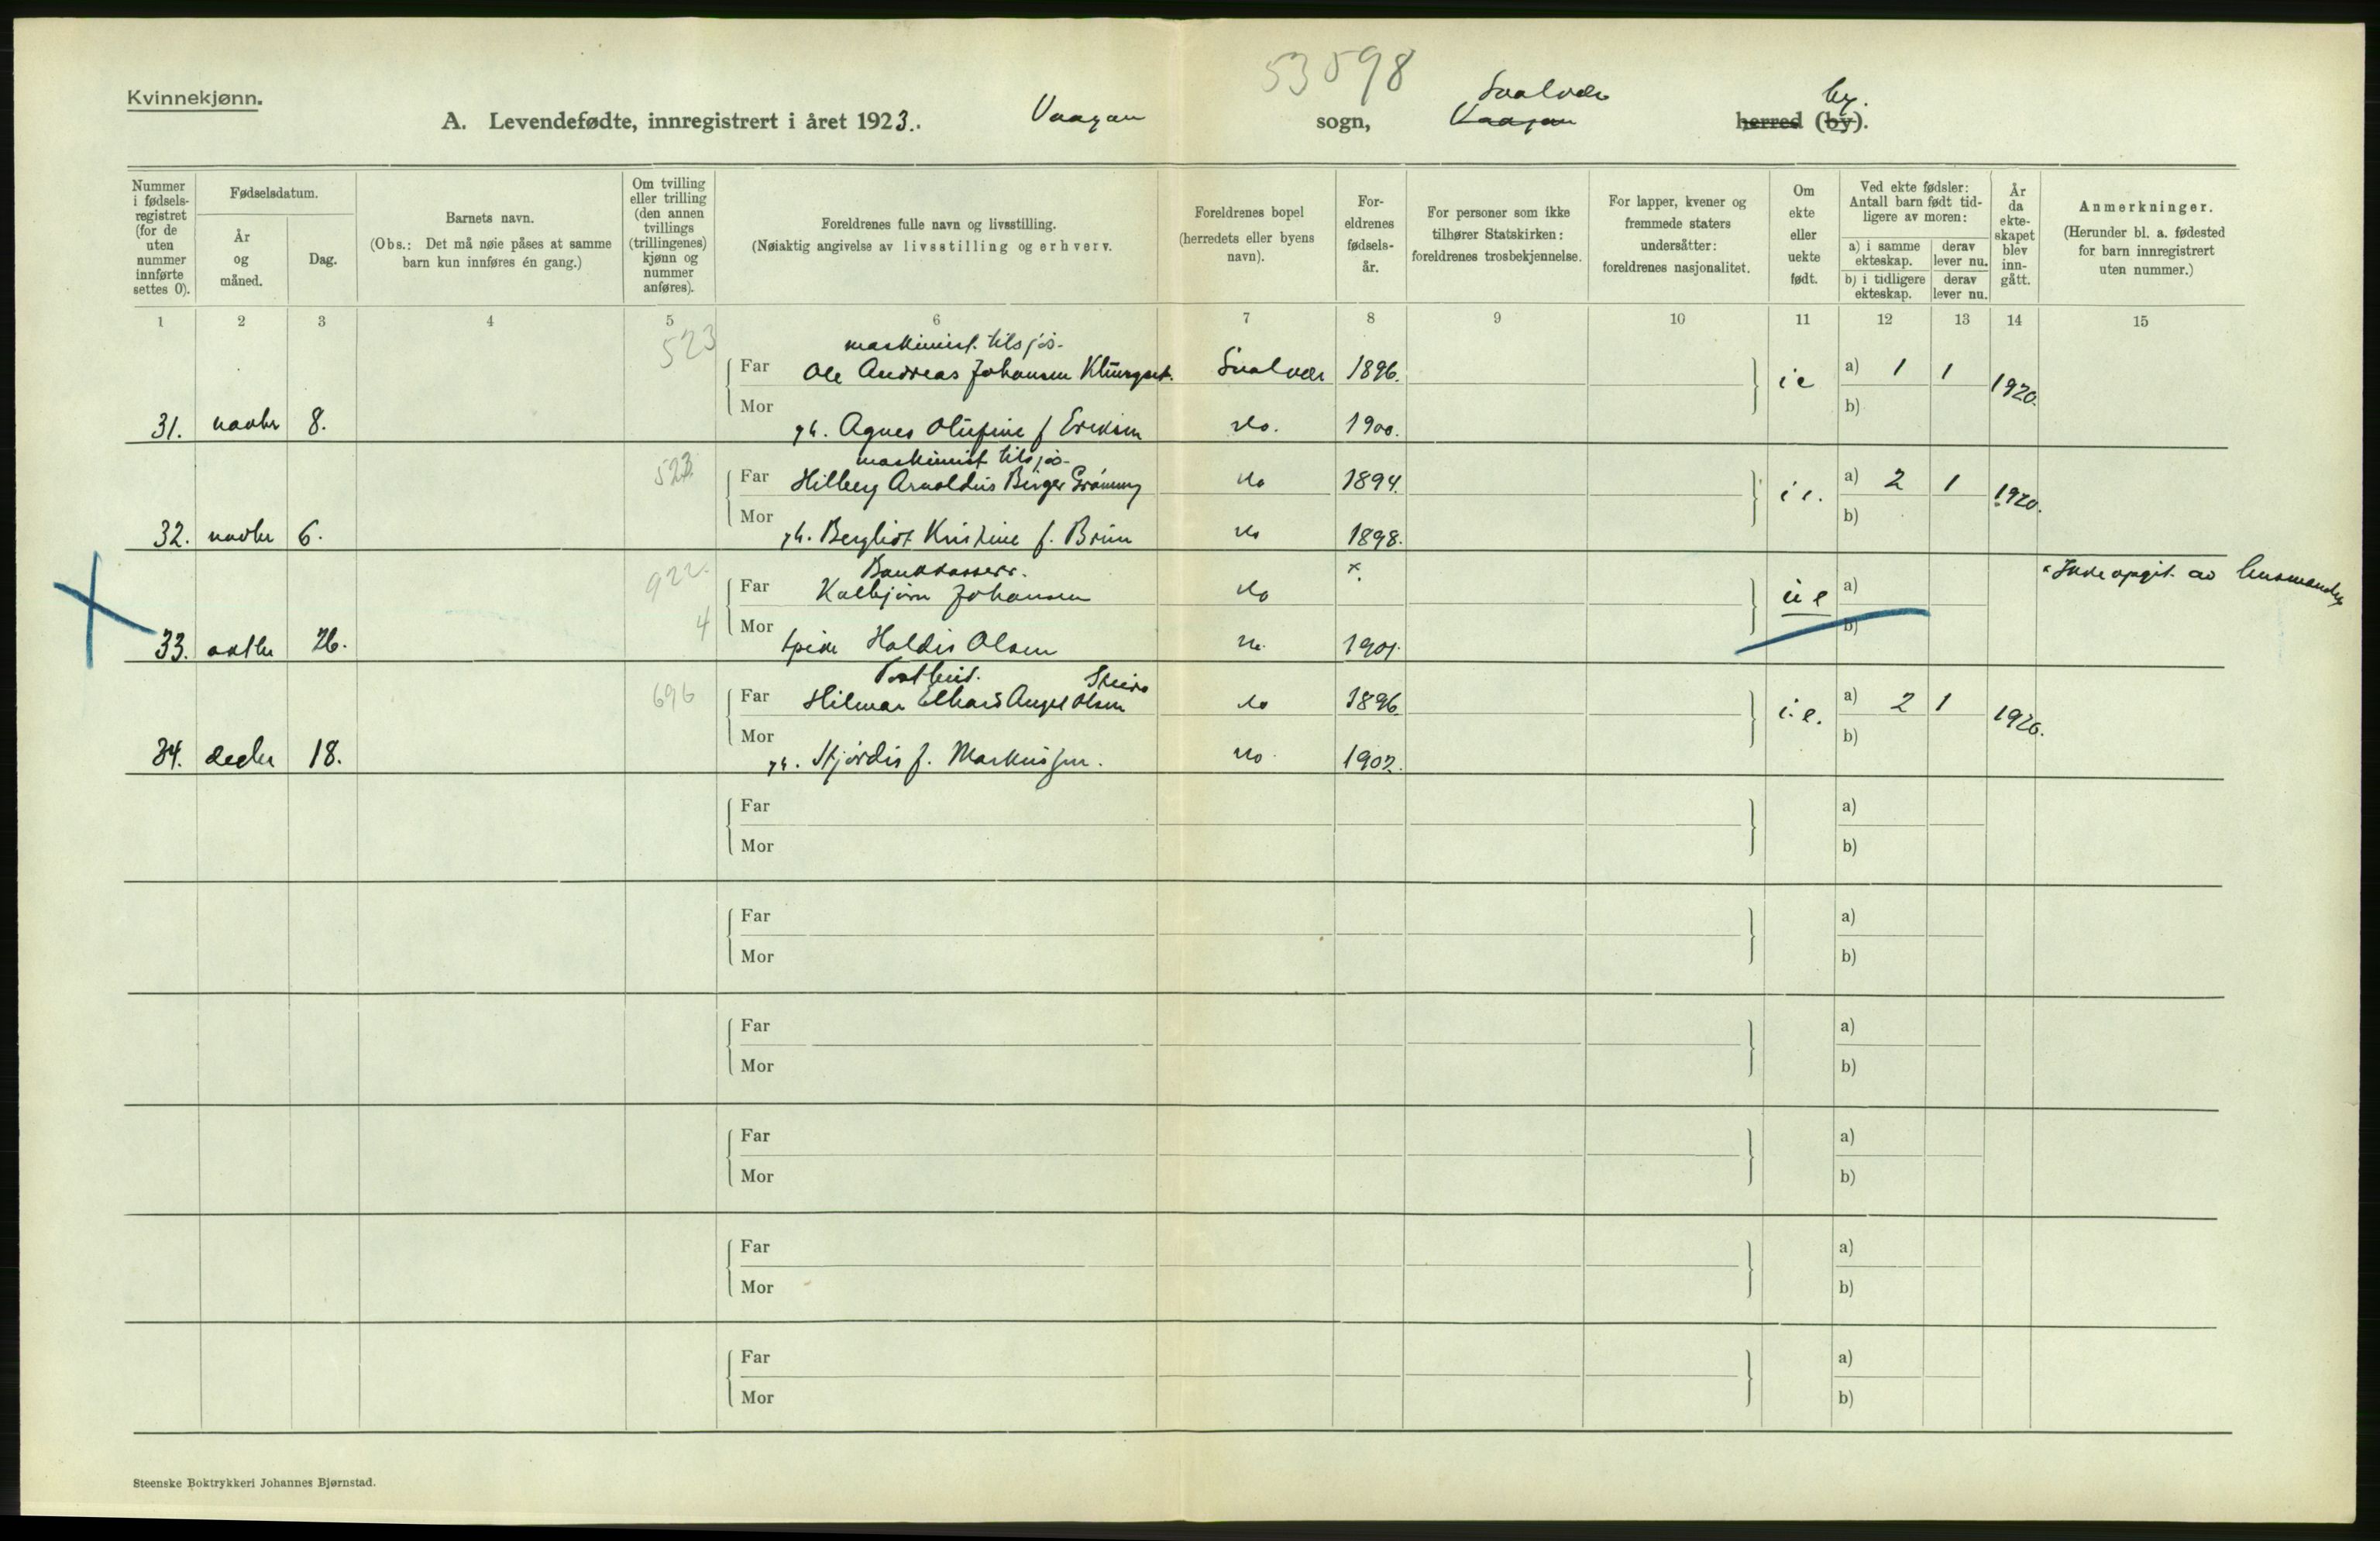 53598
Kvinnekjønn.
A. Levendefødte, innregistrert i året 1923. Vaagan sogn, Vaagan Svolvær herred (by). by.
Nummer i fødselsregistret (for de uten nummer innførte settes 0).
Fødselsdatum.
År og måned.
Dag.
Barnets navn.
(Obs.: Det må nøie påses at samme barn kun innføres én gang.)
Om tvilling eller trilling (den annen tvillings (trillingenes) kjønn og nummer anføres).
Foreldrenes fulle navn og livsstilling.
(Nøiaktig angivelse av livsstilling og erhverv.
Foreldrenes bopel (herredets eller byens navn).
Foreldrenes fødselsår.
For personer som ikke tilhører Statskirken: foreldrenes trosbekjennelse.
For lapper, kvener og fremmede staters undersåtter: foreldrenes nasjonalitet.
Om ekte eller uekte født.
Ved ekte fødsler: Antall barn født tidligere av moren:
a) i samme ekteskap.
derav lever nu.
b) i tidligere ekteskap.
derav lever nu.
År da ekteskapet blev inngått.
Anmerkninger.
(Herunder bl. a. fødested for barn innregistrert uten nummer.)
1 2 3 4 5 6 7 8 9 10 11 12 13 14 15
523 maskinist tilsjøs.
Far Ole Andreas Johansen Svolvær 1896. ie a) 1 1 1920.
31. novbr 8. Mor gh. Agnes Olufine f Eriksen do. 1900. b)
523 maskinist tilsjøs.
Far Hilberg Arnoldus Birger do 1894. i e. a) 2 1 1920.
32. novbr 6. Mor gh. Bergliot Kristine f. Brun do 1898. b)
922. Bankkasserer. x. x Ikke opgit av
Far Kolbjørn Johansen do ue a)
33. oktbr 26. 4 Mor pike Haldis Olsen do 1901. b)
696 Postbud.
Far Hilmar Olsen do 1896. i.e. a) 2 1 1920.
34. decbr 18. Mor gh. Hjørdis f. Markussen. do 1902. b)
Far a)
Mor b)
Far a)
Mor b)
Far a)
Mor b)
Far a)
Mor b)
Far a)
Mor b)
Far a)
Mor b)
Steenske Boktrykkeri Johannes Bjørnstad.